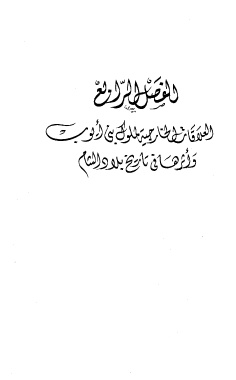 الفصل الرابع
العلاقات الخارجية لملوك بني أيوب
وأثرها في تاريخ بلاد الشام